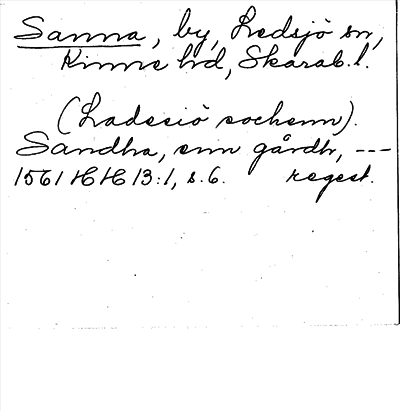 Sanna, by, Ledsjö sn,
Kinne hd, Skarab. l.
(Ladesiö sochenn).
Sandha, enn gårdh, ---
1561 HH 13:1, s. 6. regest.